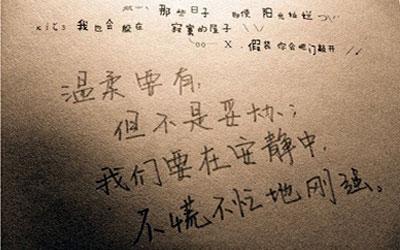 那些日子 即使 阳光灿烂
xizs 我也会躲在 寂寞的屋子
X. 假装你会把门敲开
温柔要有,
但不是妥协;
我们要在安静中,
不慌不忙地刚强。